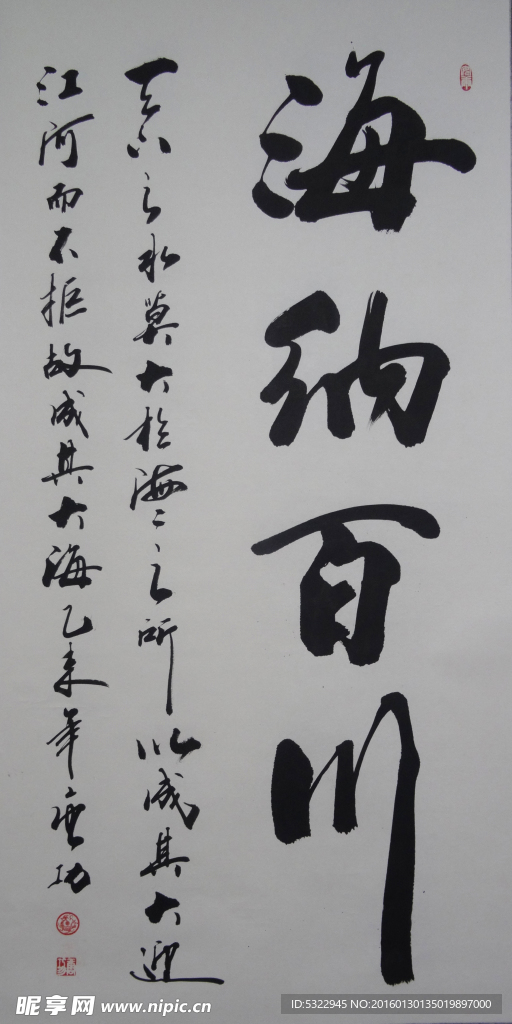 海纳百川
天下之水莫大於海海之所以成其大迎
江河而不拒故成其大海乙未年
昵享网 www.nipic.cn
ID:5322945 NO:20160130135019897000